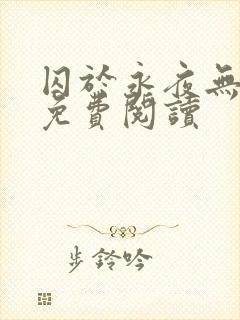 囚於永夜無
免費閱讀
步鈴吟